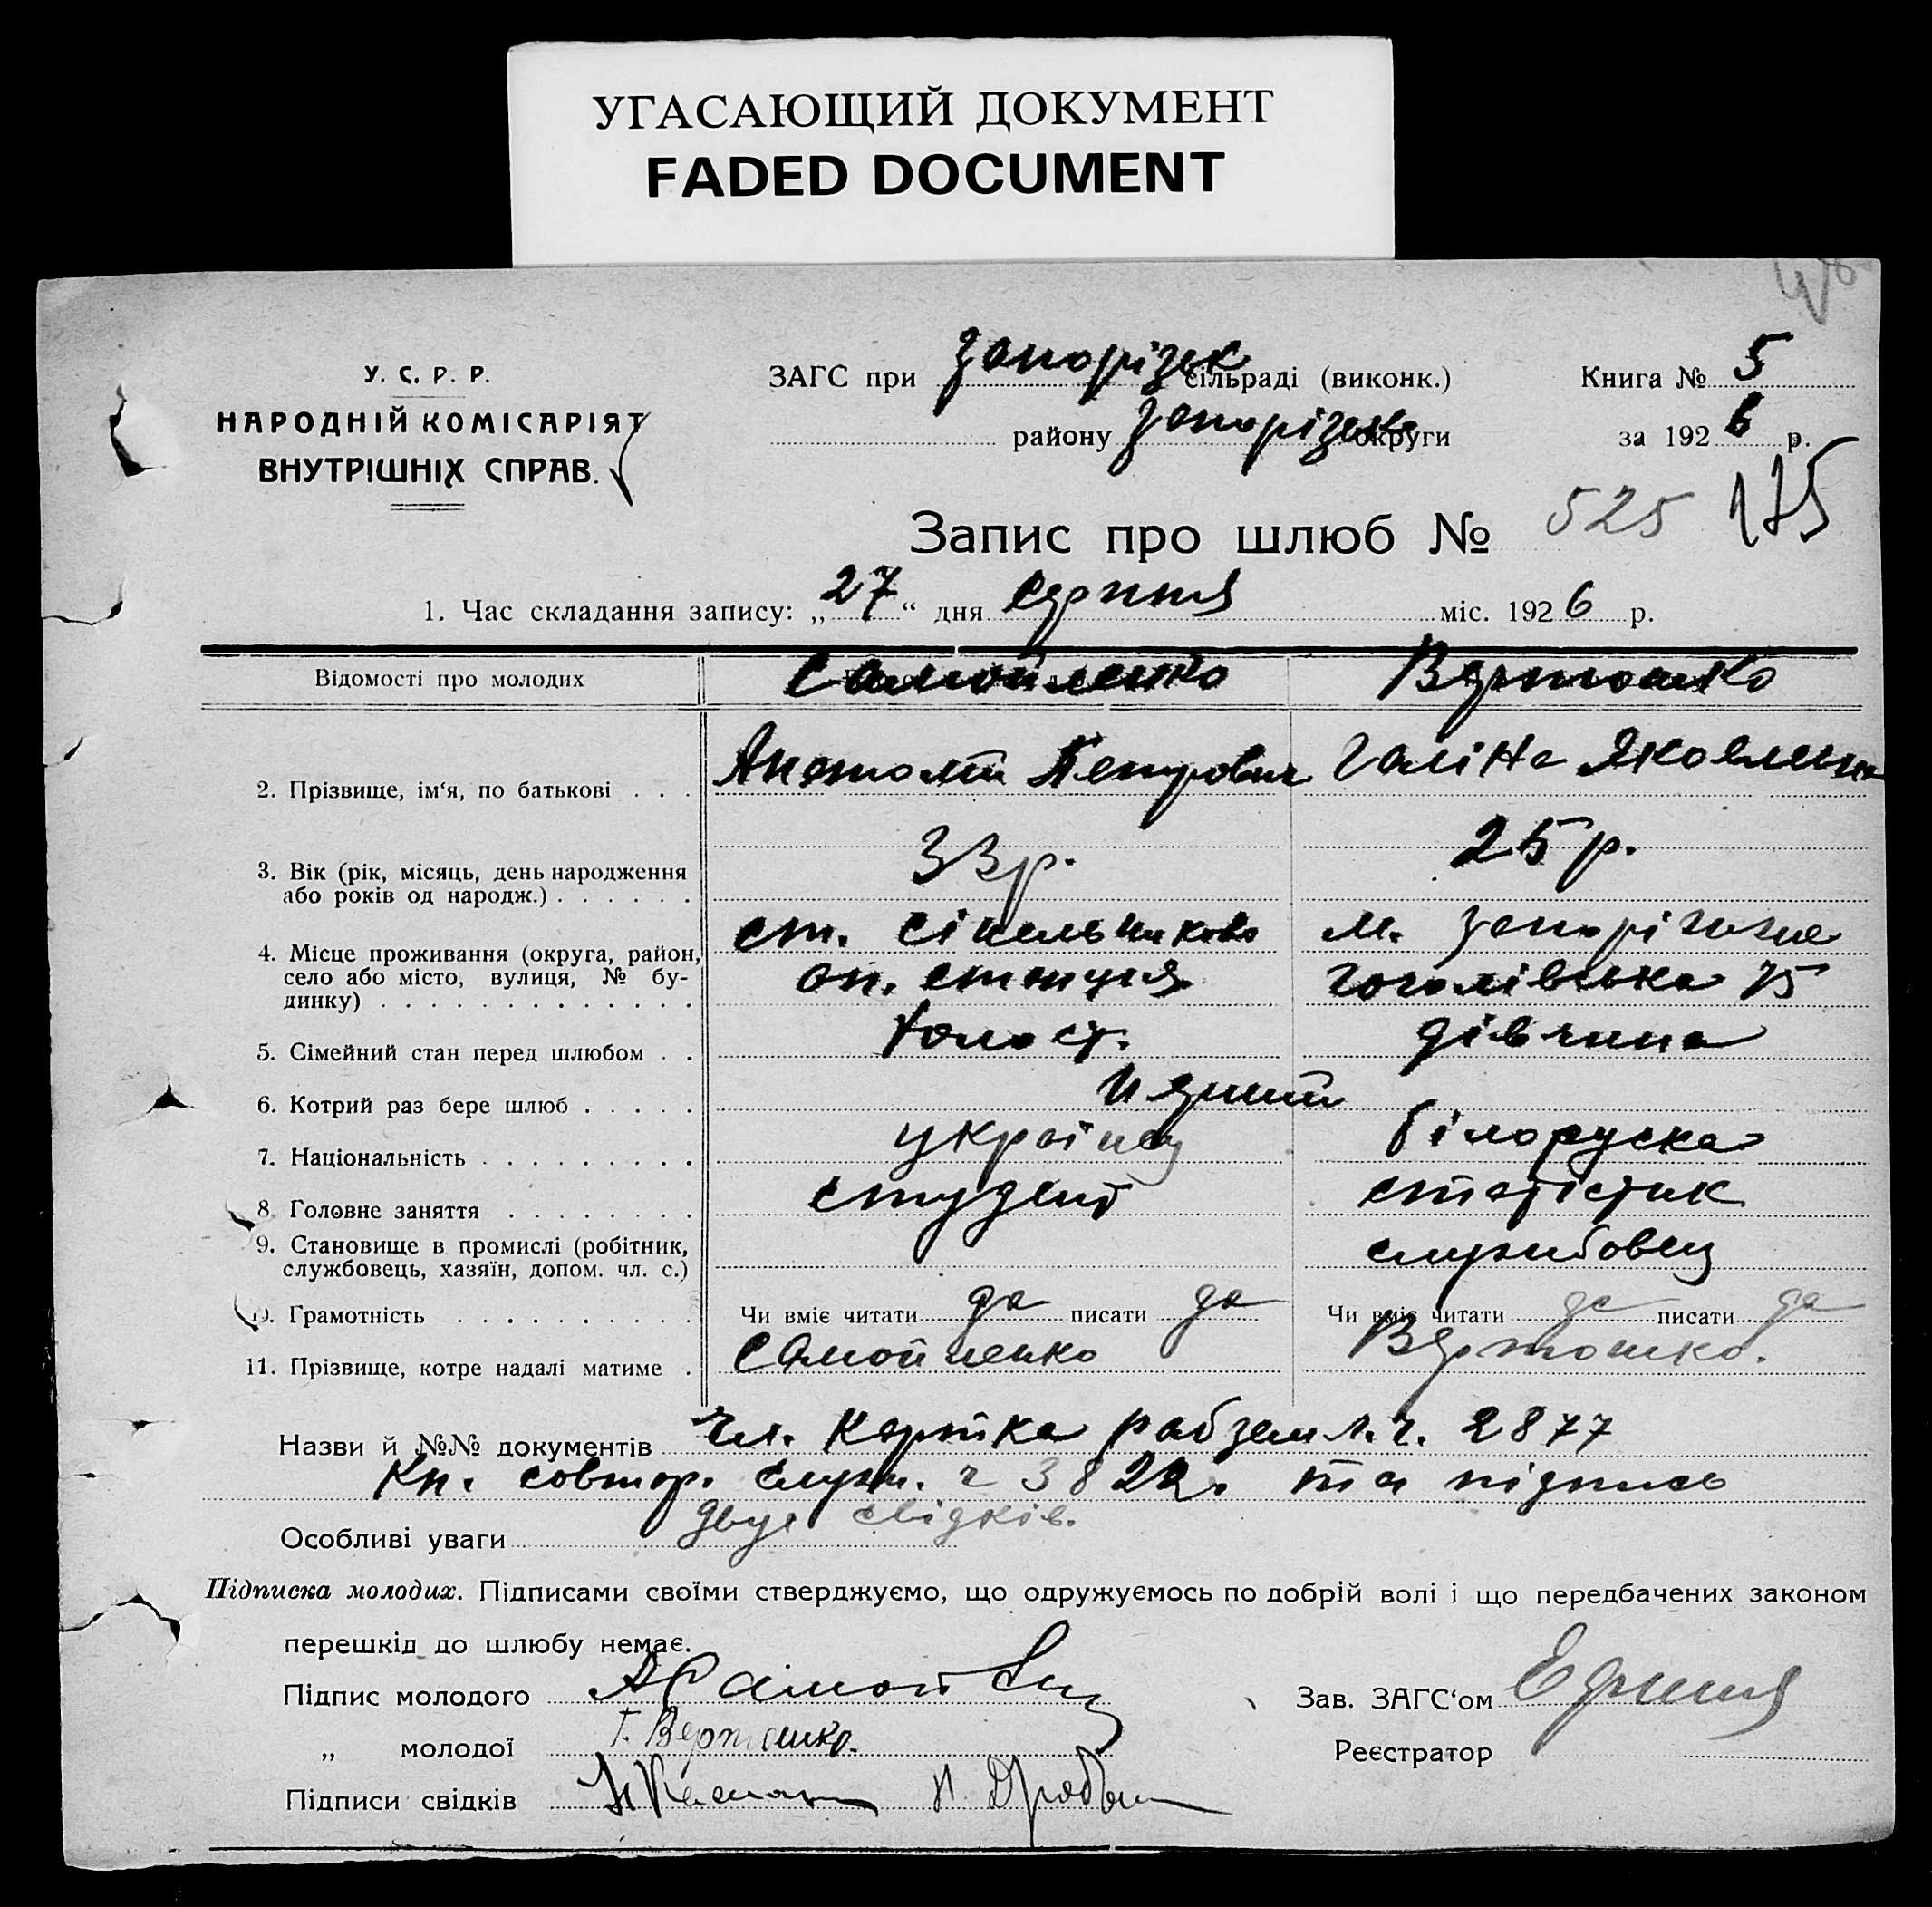 УГАСАЮЩИЙ ДОКУМЕНТ
FADED DOCUMENT
У. С. Р. Р.
НАРОДНІЙ КОМІСАРІЯТ
ВНУТРІШНІХ СПРАВ.
ЗАГС при Запорізьк сільраді (виконк.)
району Запорізьк округи
Книга № 5
за 1926 р.
Запис про шлюб № 525 175
1. Час складання запису: „27“ дня серпня міс. 1926 р.
Відомості про молодих Самойленко Вертошко
2. Прізвище, ім'я, по батькові . . . Анатолій Петрович Галіна Яковлевна
3. Вік (рік, місяць, день народження
або років од народж.) . . . . . . 33 р. 25 р.
4. Місце проживання (округа, район,
село або місто, вулиця, № бу-
динку) . . . . . . . . . . . . .
ст. Сінельникове м. Запоріжжя
оп. станция Гоголівська 75
5. Сімейний стан перед шлюбом . . холост. дівчина
6. Котрий раз бере шлюб . . . . .
7. Національність . . . . . . . . . українец білоруска
8. Головне заняття . . . . . . . . студент статістик
9. Становище в промислі (робітник,
службовець, хазяїн, допом. чл. с.) службовец
10. Грамотність . . . . . . . . . . Чи вміє читати да писати да Чи вміє читати да писати да
11. Прізвище, котре надалі матиме . Самойленко Вертошко.
Назви й №№ документів чл. картка рабземл. ч. 2877
Кн. совторг. служ. ч 3822. та підпись
двух свідків.
Особливі уваги
Підписка молодих. Підписами своїми стверджуємо, що одружуємось по добрій волі і що передбачених законом
перешкід до шлюбу немає.
Підпис молодого
„ молодої Г. Вертошко.
Підписи свідків
Зав. ЗАГС'ом
Реєстратор